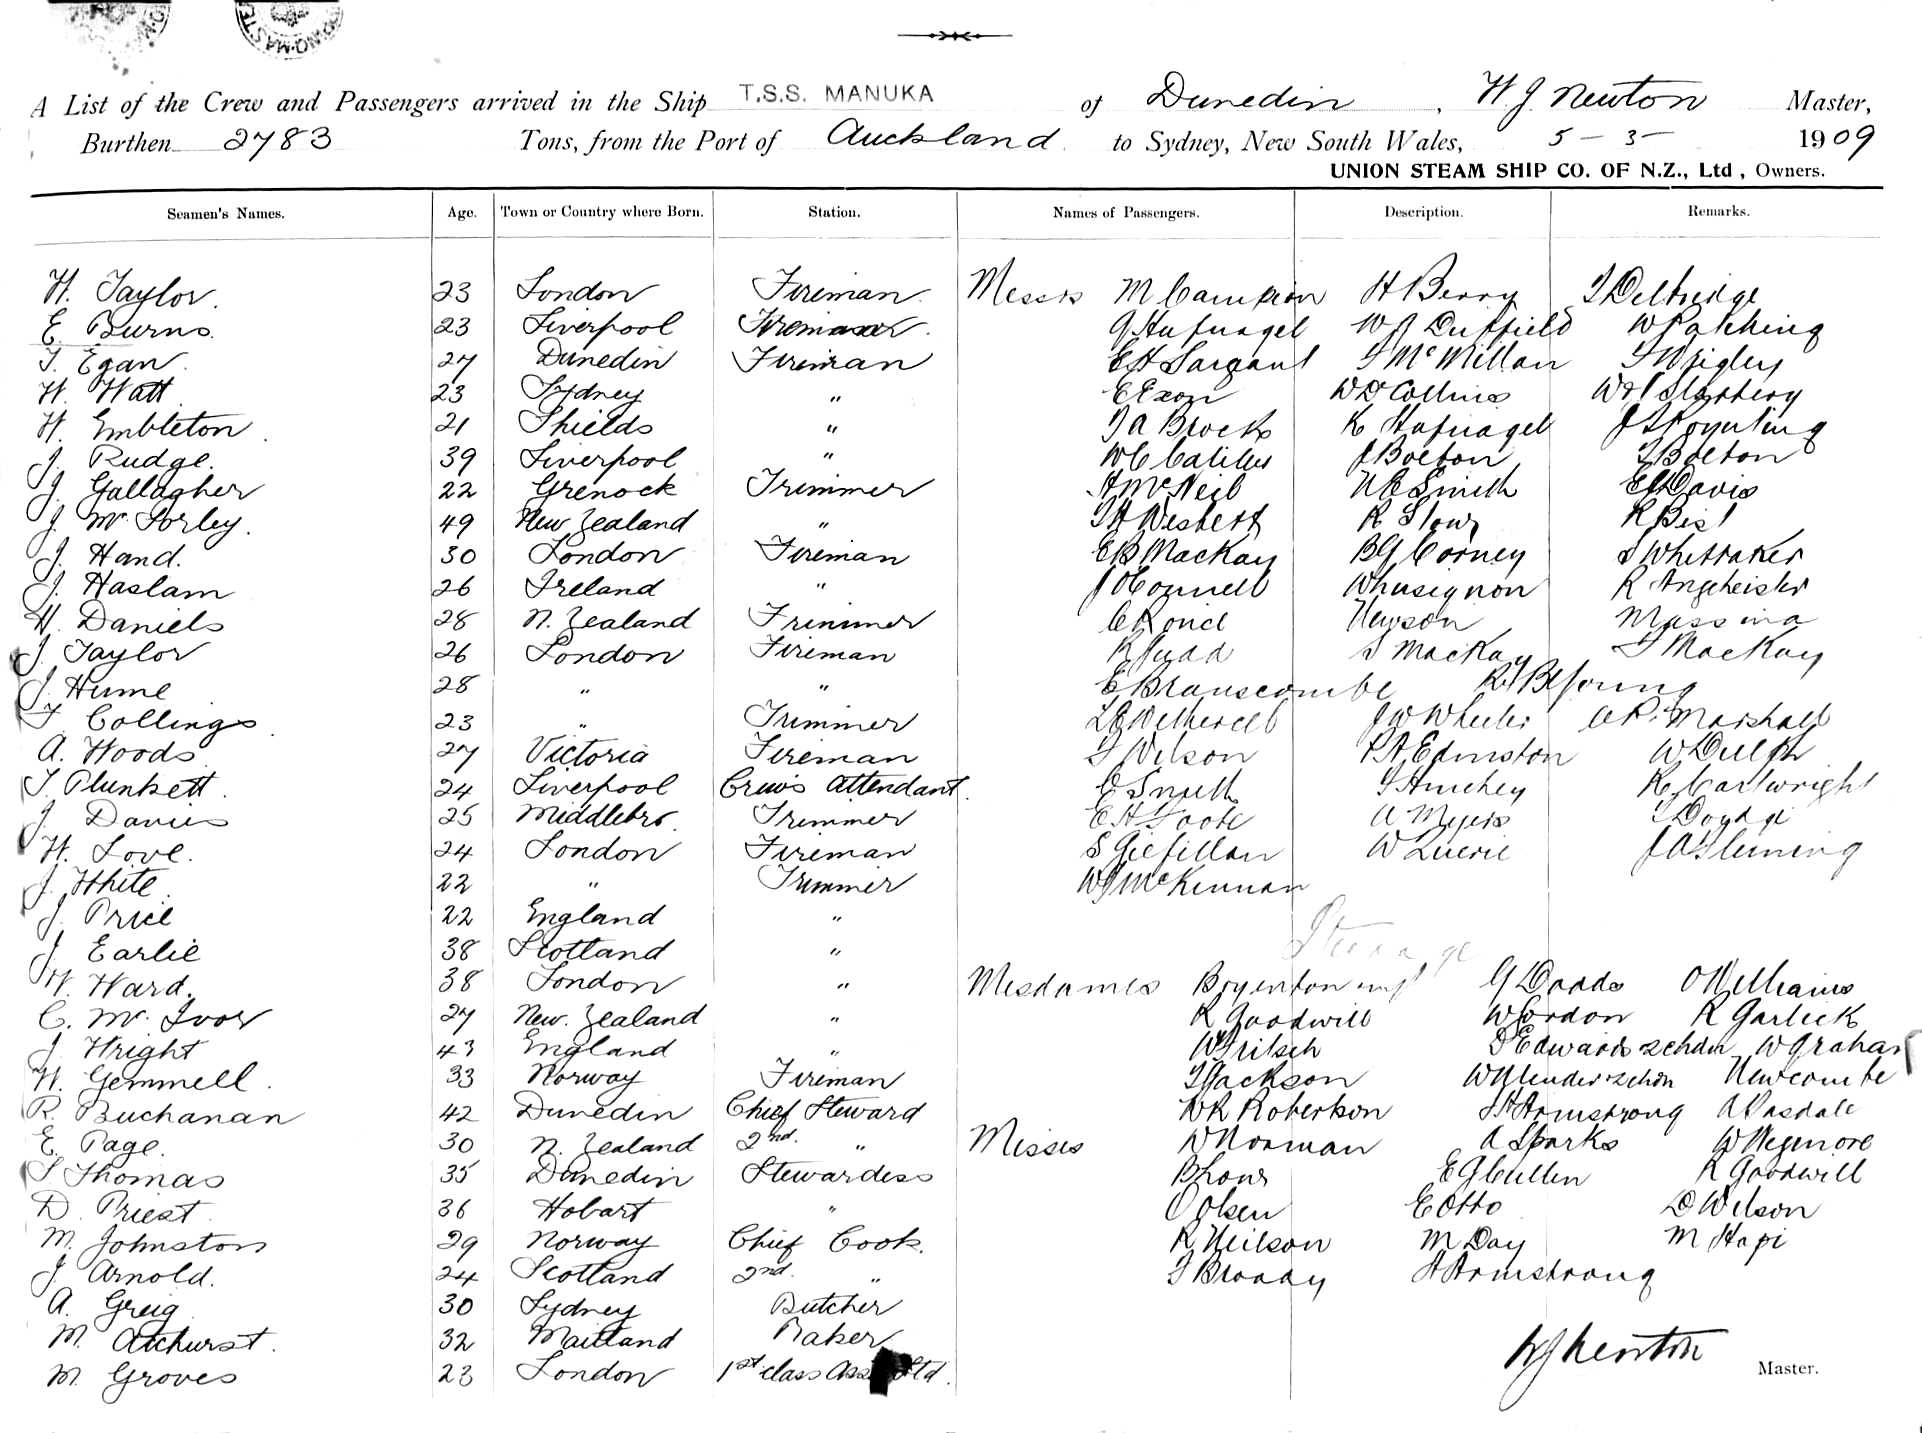 A List of the Crew and Passengers arrived in the Ship T.S.S. MANUKA of Dunedin, W. J. Newton Master,
Burthen 2783 Tons, from the Port of Auckland to Sydney, New South Wales, 5 - 3 - 1909
UNION STEAM SHIP CO. OF N.Z., Ltd, Owners.
Seamen's Names. Age. Town or Country where Born. Station. Names of Passengers. Description. Remarks.
H. Taylor. 23 London Fireman. Messrs M Campion H Berry
E. Burns. 23 Liverpool Fireman. G Hufnagel W J Duffield W Patching
T. Egan 27 Dunedin Fireman E H Sargant T McMillan T Wrigley
H. Watt 23 Sydney " E Exon W D Collins
H. Embleton. 21 Shields " J A Brock K Hufnagel J S Poynting
J. Rudge. 39 Liverpool " J Bolton T Bolton
J. Gallagher 22 Grenock Trimmer A McNeil N E Smith E J Davis
J. McSorley. 49 New Zealand " R Best
J. Hand. 30 London Fireman E B MacKay B G Corney S Whittaker
J. Haslam 26 Ireland " J O'Connell
H. Daniels 28 N. Zealand Trimmer Newson Massina
J. Taylor 26 London Fireman R Judd S MacKay T MacKay
J. Hume 28 " " E Branscombe
T. Collings 23 " Trimmer J W Wheeler A R. Marshall
A. Woods 27 Victoria Fireman T Wilson P A Edmiston
T. Plunkett. 24 Liverpool Crew's Attendant. C Smith R Cartwright
J. Davies 25 Middlebro. Trimmer E H Foote A Myers
H. Love. 24 London Fireman S Gilfillan J A Fleming
J. White. 22 " Trimmer W J McKinnan
J. Price 22 England "
Steerage
J. Earlie 38 Scotland "
W. Ward. 38 London " Mesdames Boyenton G Dodds O Williams
C. McIvor 27 New. Zealand " R Goodwill W Gordon R Garlick
J. Wright 43 England " W Fritsch D Edwards 2 chdn W Graham
W. Gemmell. 33 Norway Fireman T Jackson Newcombe
R. Buchanan 42 Dunedin Chief Steward W R Robertson J H Armstrong
E. Page. 30 N. Zealand 2nd. " Misses W Norman A Sparks W Wegmore
S Thomas 35 Dunedin Stewardess E G Cullen R Goodwill
D. Priest. 36 Hobart " O Olsen E Otto D Wilson
M. Johnston 29 Norway Chief Cook. R Neilson M Day M Hapi
J. Arnold. 24 Scotland 2nd. " T Broady A Armstrong
A. Greig 30 Sydney Butcher
M. Atchurst. 32 Maitland Baker
M. Groves 23 London 1st class Ass Std.
W J Newton Master.